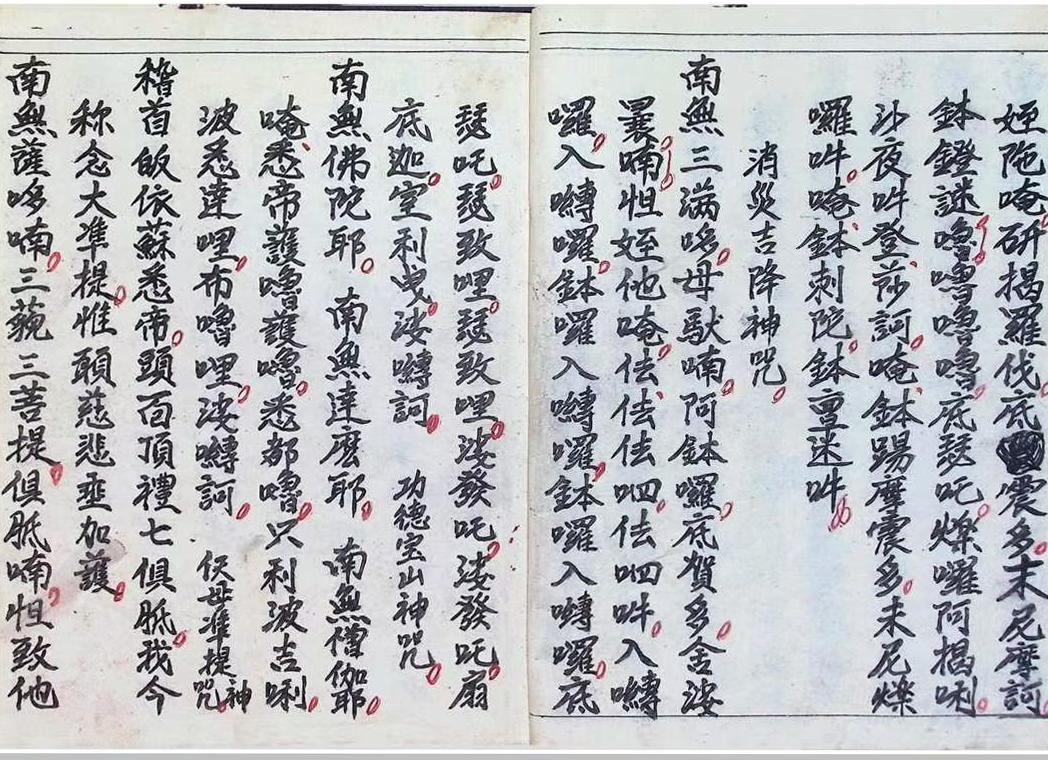 姪陁唵斫揭羅伐底震多末尼摩訶
鉢鐙謎嚕嚕嚕嚕底瑟吒爍囉阿揭唎
沙夜吽登莎訶唵鉢踢摩震多末尼爍
囉吽唵鉢刺陀鉢亶迷吽
消災吉降神咒
南無三滿哆母馱喃阿鉢囉底賀多舍娑
曩喃怛姪他唵佉佉佉呬佉呬吽入嚩
囉入嚩囉鉢囉入嚩囉鉢囉入嚩囉底
瑟吒瑟致哩瑟致哩娑發吒娑發吒扇
底迦室利曳娑嚩訶 功德宝山神咒
南無佛陀耶 南無達麼耶 南無僧伽耶
唵悉帝護嚕護嚕悉都嚕只利波吉唎
波悉達哩布嚕哩娑嚩訶 伏母準提神咒
稽首皈依蘇悉帝頭百頂禮七俱胝我今
称念大準提惟願慈悲垂加護
南無薩哆喃三藐三菩提俱胝喃怛致他